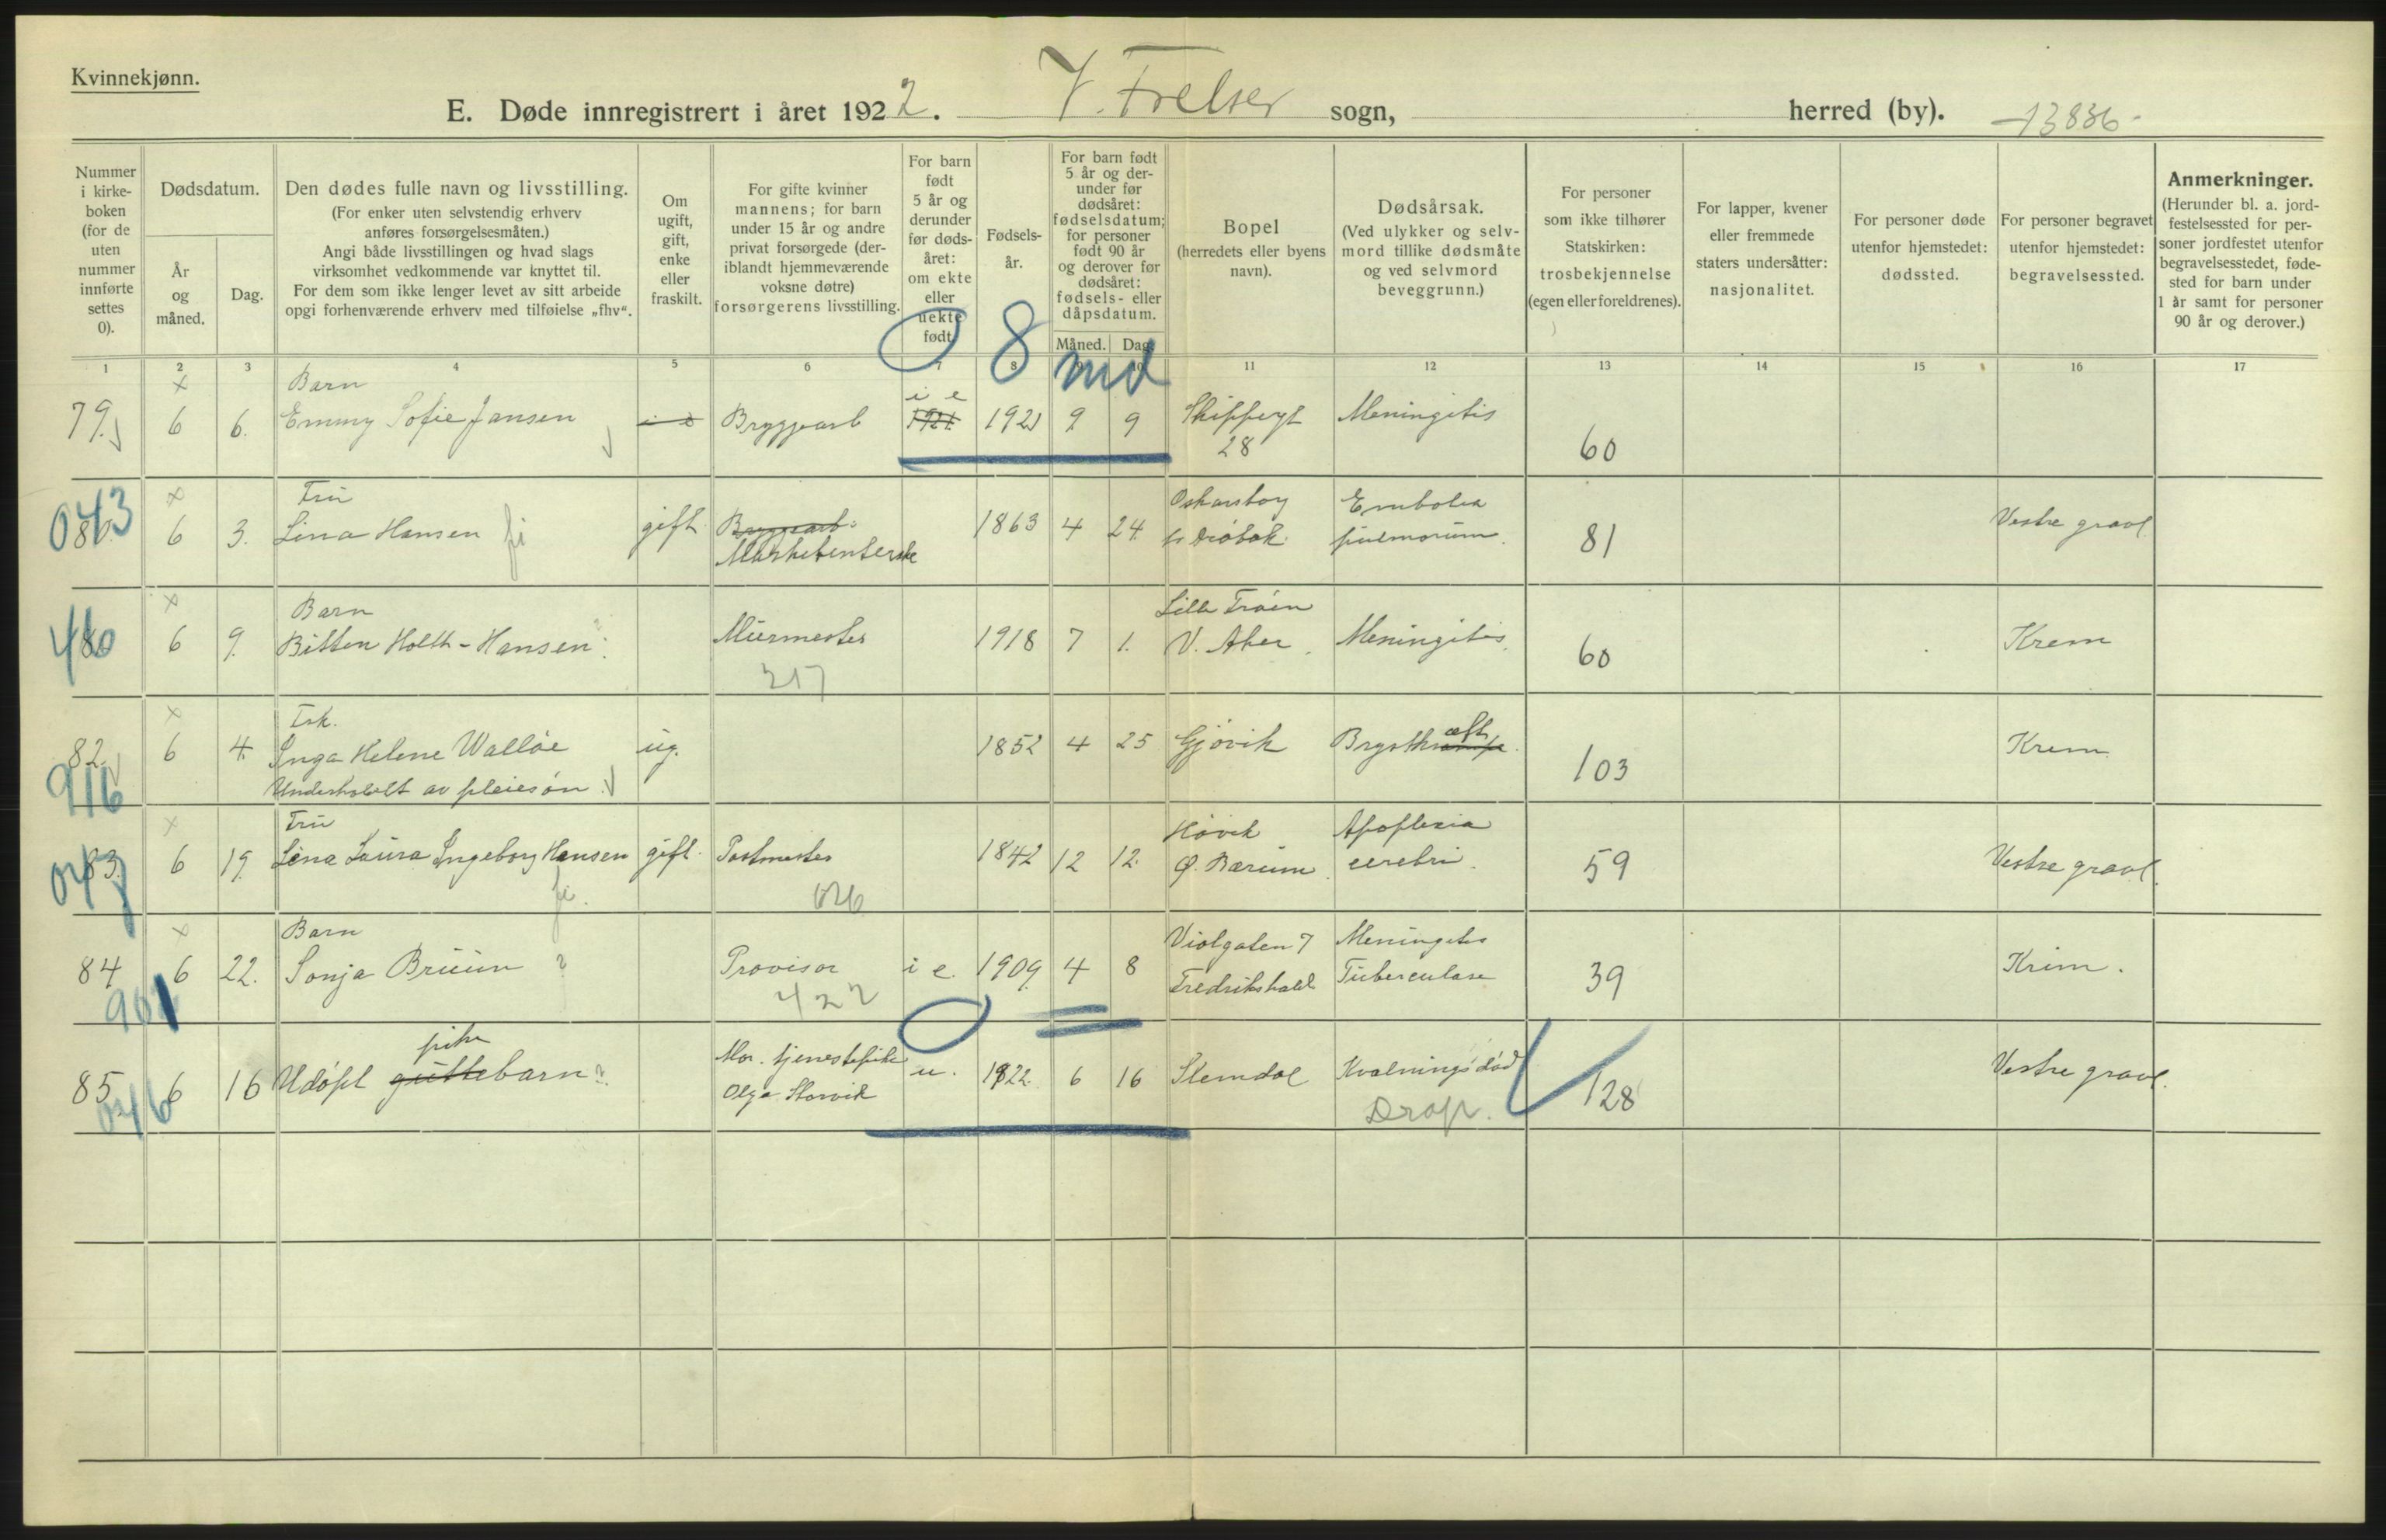 Kvinnekjønn.
E. Døde innregistrert i året 1922. V. Frelser sogn, herred (by). 13836
Nummer i kirkeboken (for de uten nummer innførte settes 0).
Dødsdatum.
År og måned.
Dag.
Den dødes fulle navn og livsstilling.
(For enker uten selvstendig erhverv anføres forsørgelsesmåten.)
Angi både livsstillingen og hvad slags virksomhet vedkommende var knyttet til.
For dem som ikke lenger levet av sitt arbeide opgi forhenværende erhverv med tilføielse „fhv“.
Om ugift, gift, enke eller fraskilt.
For gifte kvinner mannens; for barn under 15 år og andre privat forsørgede (deriblandt hjemmeværende voksne døtre) forsørgerens livsstilling.
For barn født 5 år og derunder før dødsåret: om ekte eller uekte født.
Fødselsår.
For barn født 5 år og derunder før dødsåret: fødselsdatum; for personer født 90 år og derover før dødsåret: fødsels- eller dåpsdatum.
Måned. Dag.
Bopel (herredets eller byens navn).
Dødsårsak.
(Ved ulykker og selvmord tillike dødsmåte og ved selvmord beveggrunn.)
For personer som ikke tilhører Statskirken: trosbekjennelse (egen eller foreldrenes).
For lapper, kvener eller fremmede staters undersåtter: nasjonalitet.
For personer døde utenfor hjemstedet: dødssted.
For personer begravet utenfor hjemstedet: begravelsessted.
Anmerkninger.
(Herunder bl. a. jordfestelsessted for personer jordfestet utenfor begravelsesstedet, fødested for barn under 1 år samt for personer 90 år og derover.)
1 2 3 4 5 6 7 8 9 10 11 12 13 14 15 16 17
8 md
Barn i e
79. 6 6. Emmy Sofie Jansen Bryggearb 1921 1921 9 9 Skippergt Meningitis
28 60
Fru Oskarsborg Embolia
043 80. 6 3. Lina Hansen gift Bryggearb. 1863 4 24 pr Drøbak pulmorum. 81 Vestre gravl.
Marketenterske
Barn Lille Frøen
480 6 9. Bitten Holth-Hansen Murmester 1918 7 1. V. Aker. Meningitis. 60 Krem
317
Frk.
82. 6 4. Inga Helene Walløe ug. 1852 4 25 Gjøvik Brystkræft 103 Krem.
916 Underholdt av pleiesøn.
Fru Høvik Apoplexia
83. 6 19. Lina Laura Ingeborg Hansen gift. Postmester 1842 12 12. Ø. Bærum. cerebri. 59 Vestre gravl.
026
Barn Violgaten 7 Meningitis
84 6 22. Sonja Bruun ? Provisor i e. 1909 4 8 Fredrikshald Tuberculose 39 Krem.
901 422
pike Mor. tjenestepike
85 6 16 Udøpt guttebarn ? Olga Storvik u. 1922. 6 16 Slemdal Kvælningsdød 128 Vestre gravl.
046 Drap.